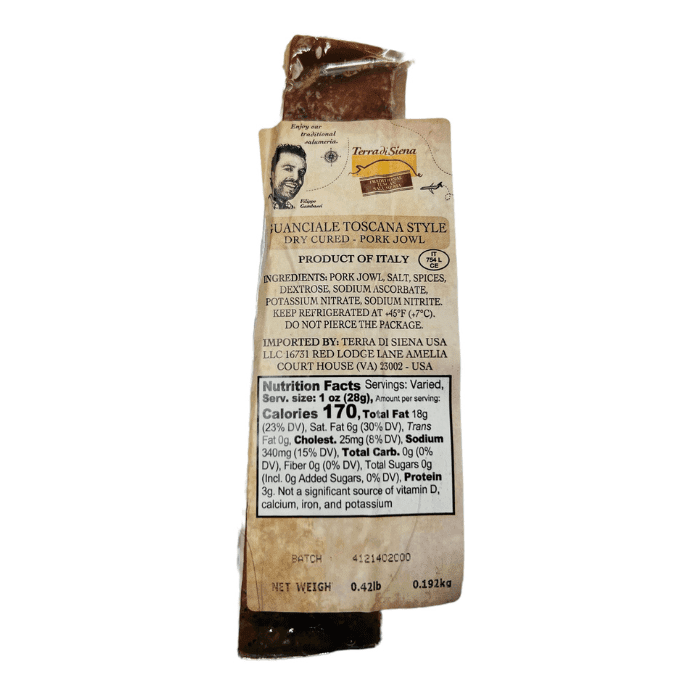 Enjoy our
traditional
salumeria.
Terra di Siena
Filippo
Gambassi
GUANCIALE TOSCANA STYLE
DRY CURED - PORK JOWL
PRODUCT OF ITALY
IT
754 L
CE
INGREDIENTS: PORK JOWL, SALT, SPICES,
DEXTROSE, SODIUM ASCORBATE,
POTASSIUM NITRATE, SODIUM NITRITE.
KEEP REFRIGERATED AT +45°F (+7°C).
DO NOT PIERCE THE PACKAGE.
IMPORTED BY: TERRA DI SIENA USA
LLC 16731 RED LODGE LANE AMELIA
COURT HOUSE (VA) 23002 - USA
Nutrition Facts Servings: Varied,
Serv. size: 1 oz (28g), Amount per serving:
Calories 170, Total Fat 18g
(23% DV), Sat. Fat 6g (30% DV), Trans
Fat 0g, Cholest. 25mg (8% DV), Sodium
340mg (15% DV), Total Carb. 0g (0%
DV), Fiber 0g (0% DV), Total Sugars 0g
(Incl. 0g Added Sugars, 0% DV), Protein
3g. Not a significant source of vitamin D,
calcium, iron, and potassium
BATCH 4121402C00
NET WEIGH 0.42lb 0.192kg